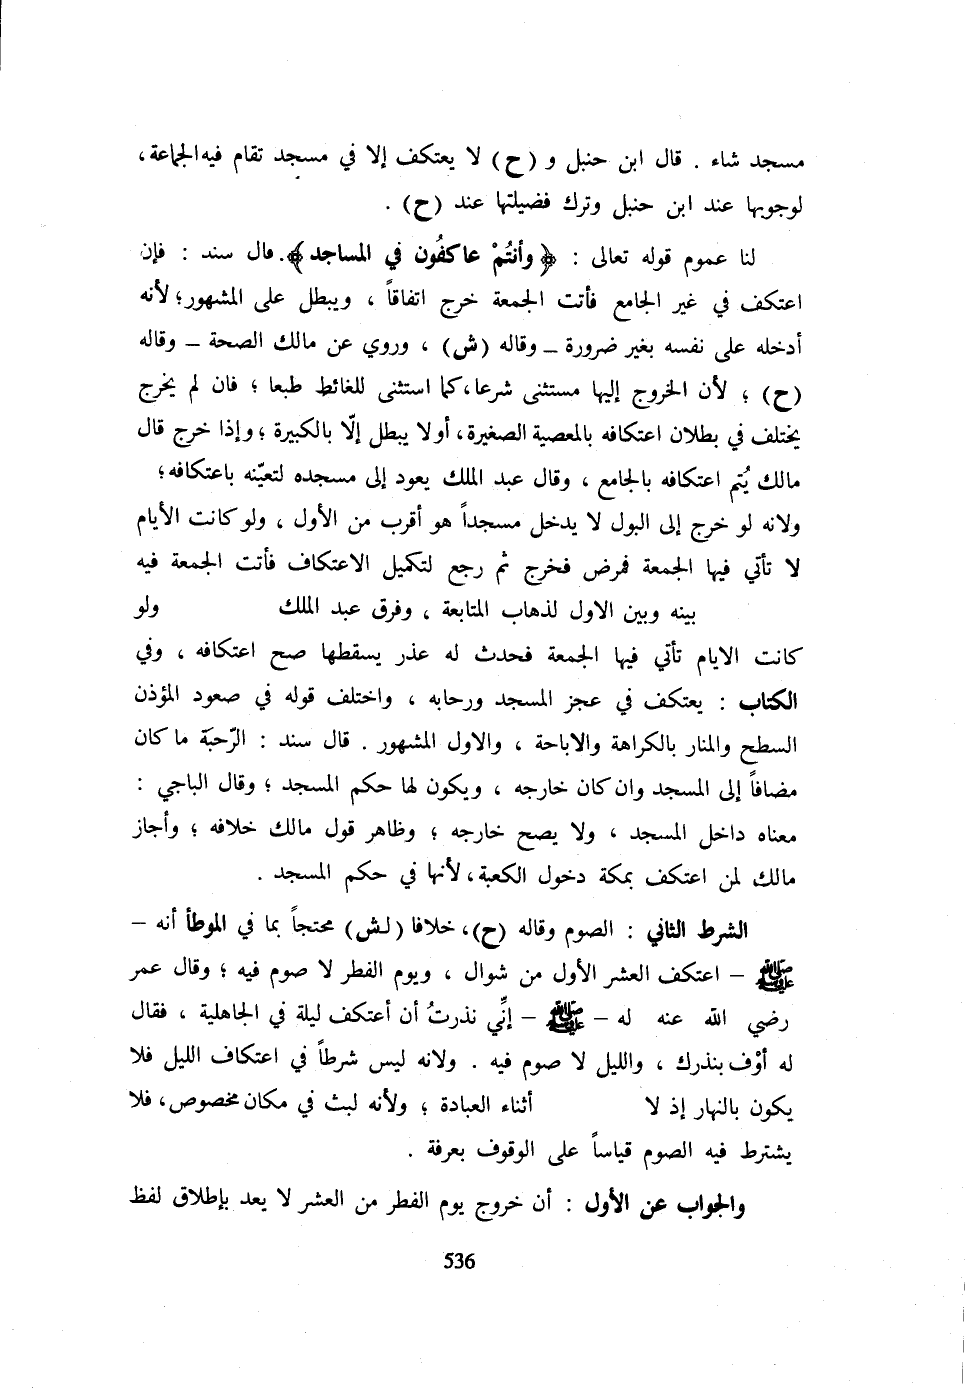 مسجد شاء . قال ابن حنبل و (ح) لا يعتكف إلا في مسجد تقام فيه الجماعة ،
لوجوبها عند ابن حنبل وترك فضيلتها عند (ح) .
لنا عموم قوله تعالى : ﴿وأنتُمْ عاكفُون في المساجد﴾. قال سند : فإن
اعتكف في غير الجامع فأتت الجمعة خرج اتفاقاً ، ويبطل على المشهور؛ لأنه
أدخله على نفسه بغير ضرورة – وقاله (ش) ، وروي عن مالك الصحة – وقاله
(ح) ؛ لأن الخروج إليها مستثنى شرعا، كما استثنى للغائط طبعا ؛ فان لم يخرج
يختلف في بطلان اعتكافه بالمعصية الصغيرة، أولا يبطل إلّا بالكبيرة ؛ وإذا خرج قال
مالك يُتم اعتكافه بالجامع ، وقال عبد الملك يعود إلى مسجده لتعيّنه باعتكافه؛
ولانه لو خرج إلى البول لا يدخل مسجداً هو أقرب من الأول ، ولو كانت الأيام
لا تأتي فيها الجمعة فمرض فخرج ثم رجع لتكميل الاعتكاف فأتت الجمعة فيه
بينه وبين الاول لذهاب المتابعة ، وفرق عبد الملك ولو
كانت الايام تأتي فيها الجمعة فحدث له عذر يسقطها صح اعتكافه ، وفي
الكتاب : يعتكف في عجز المسجد ورحابه ، واختلف قوله في صعود المؤذن
السطح والمنار بالكراهة والاباحة ، والاول المشهور . قال سند : الرّحبَة ما كان
مضافاً إلى المسجد وان كان خارجه ، ويكون لها حكم المسجد ؛ وقال الباجي :
معناه داخل المسجد ، ولا يصح خارجه ؛ وظاهر قول مالك خلافه ؛ وأجاز
مالك لمن اعتكف بمكة دخول الكعبة، لأنها في حكم المسجد .
الشرط الثاني : الصوم وقاله (ح)، خلافا (لش) محتجاً بما في الموطأ أنه –
ﷺ – اعتكف العشر الأول من شوال ، ويوم الفطر لا صوم فيه ؛ وقال عمر
رضي الله عنه له – ﷺ – إنِّي نذرتُ أن أعتكف ليلة في الجاهلية ، فقال
له أوْف بنذرك ، والليل لا صوم فيه . ولانه ليس شرطاً في اعتكاف الليل فلا
يكون بالنهار إذ لا أثناء العبادة ؛ ولأنه لبث في مكان مخصوص، فلا
يشترط فيه الصوم قياساً على الوقوف بعرفة .
والجواب عن الأول : أن خروج يوم الفطر من العشر لا يعد بإطلاق لفظ
536